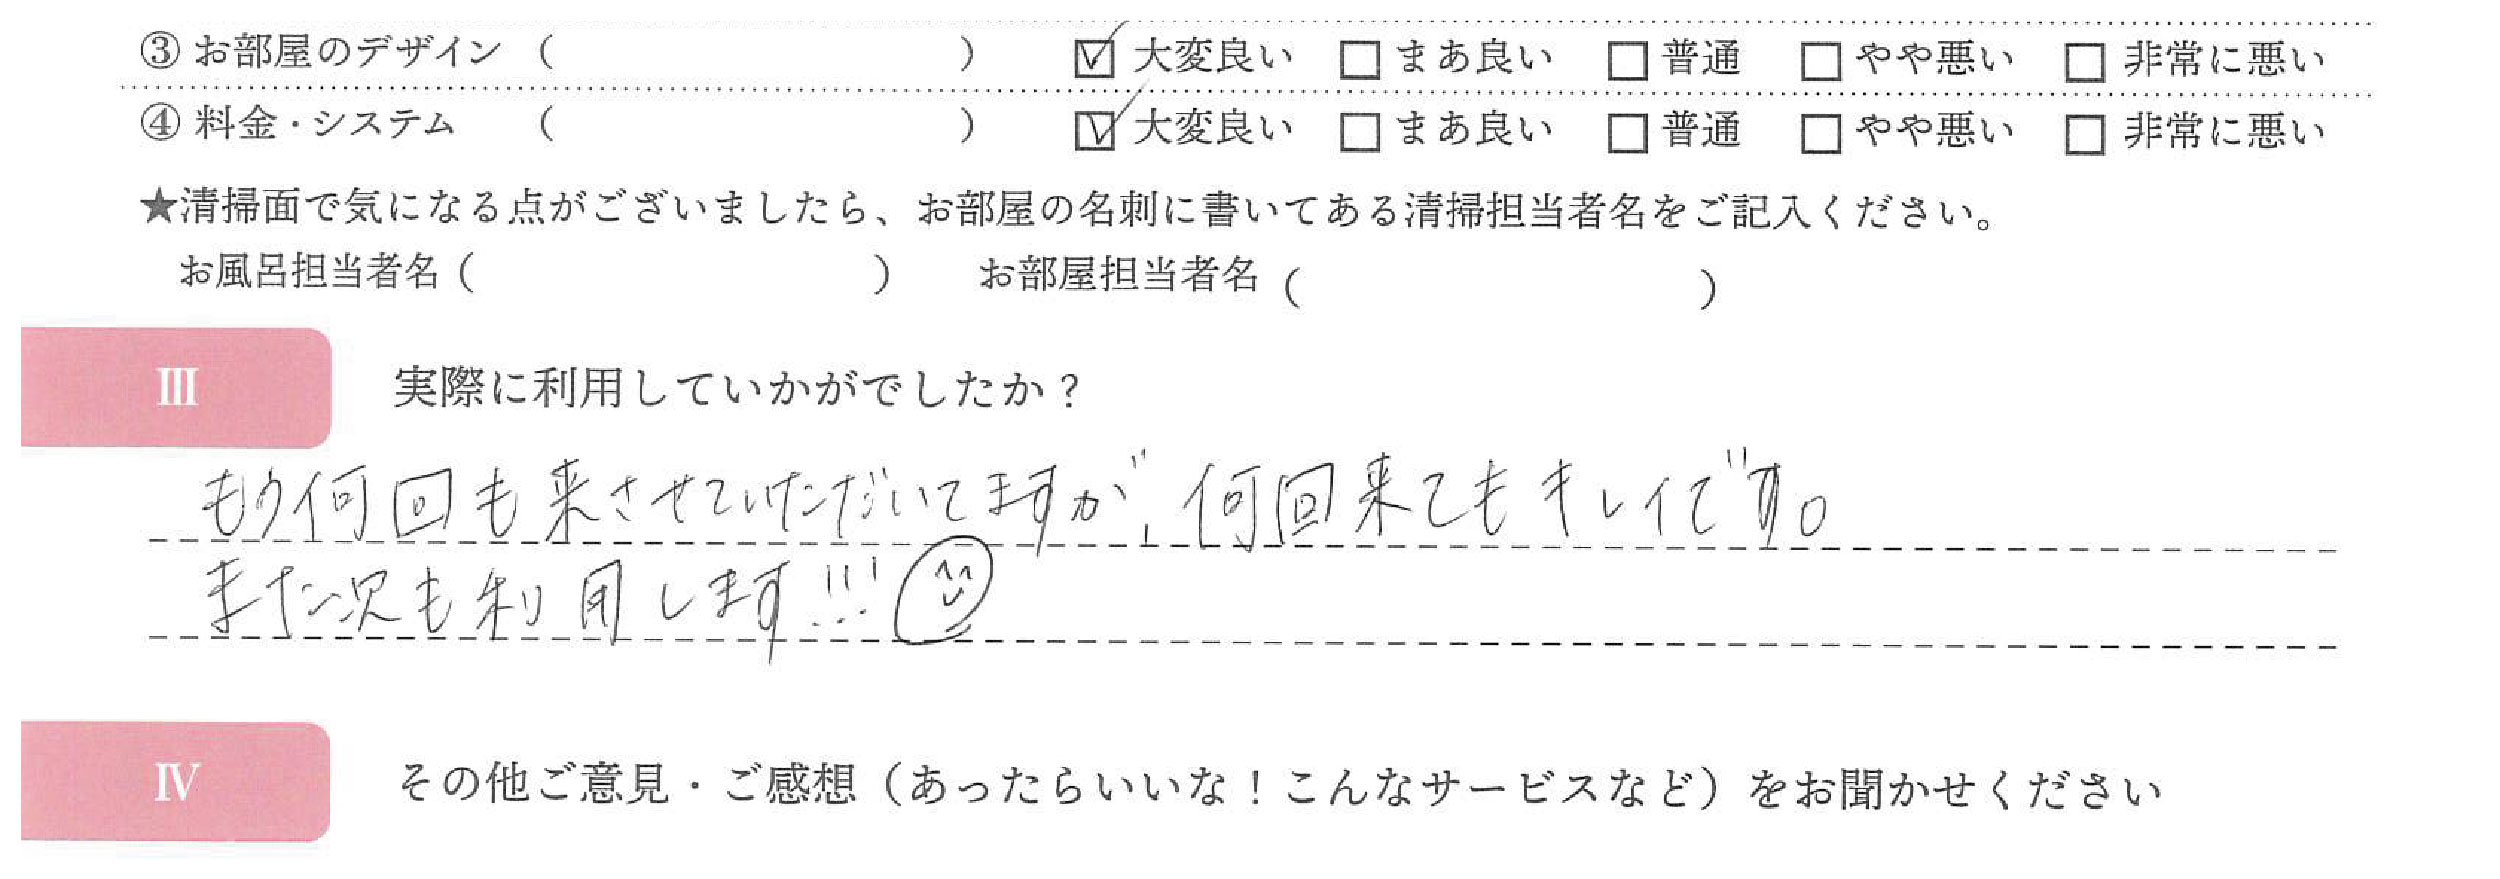 ③ お部屋のデザイン （　　　　　　　　　　） ☑ 大変良い □ まあ良い □ 普通 □ やや悪い □ 非常に悪い
④ 料金・システム （　　　　　　　　　　） ☑ 大変良い □ まあ良い □ 普通 □ やや悪い □ 非常に悪い
★清掃面で気になる点がございましたら、お部屋の名刺に書いてある清掃担当者名をご記入ください。
お風呂担当者名（　　　　　　　　　　） お部屋担当者名（　　　　　　　　　　）
Ⅲ 実際に利用していかがでしたか？
もう何回も来させていただいてますが、何回来てもキレイです。
また次も利用します!!!
Ⅳ その他ご意見・ご感想（あったらいいな！こんなサービスなど）をお聞かせください